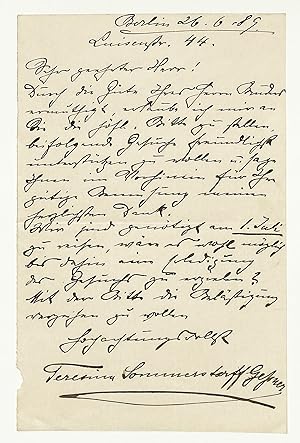 Berlin 26. 6. 89.
Luisenstr. 44.
Sehr geehrter Herr!
Durch die Güte Ihres Herrn Bruders
ermuthigt, erlaube ich mir an
Sie die höfl. Bitte zu stellen,
beifolgende Gesuche freundlichst
unterstützen zu wollen u. sage
Ihnen im Vorhinein für Ihre
gütige Bemühung meinen
herzlichsten Dank.
Wir sind genötigt am 1. Juli
zu reisen, wäre es wohl möglich
bis dahin eine Erledigung
des Gesuchs zu erzielen?
Mit der Bitte die Belästigung
verzeihen zu wollen
Hochachtungsvollst
Teresina Sommerstorff Gessner